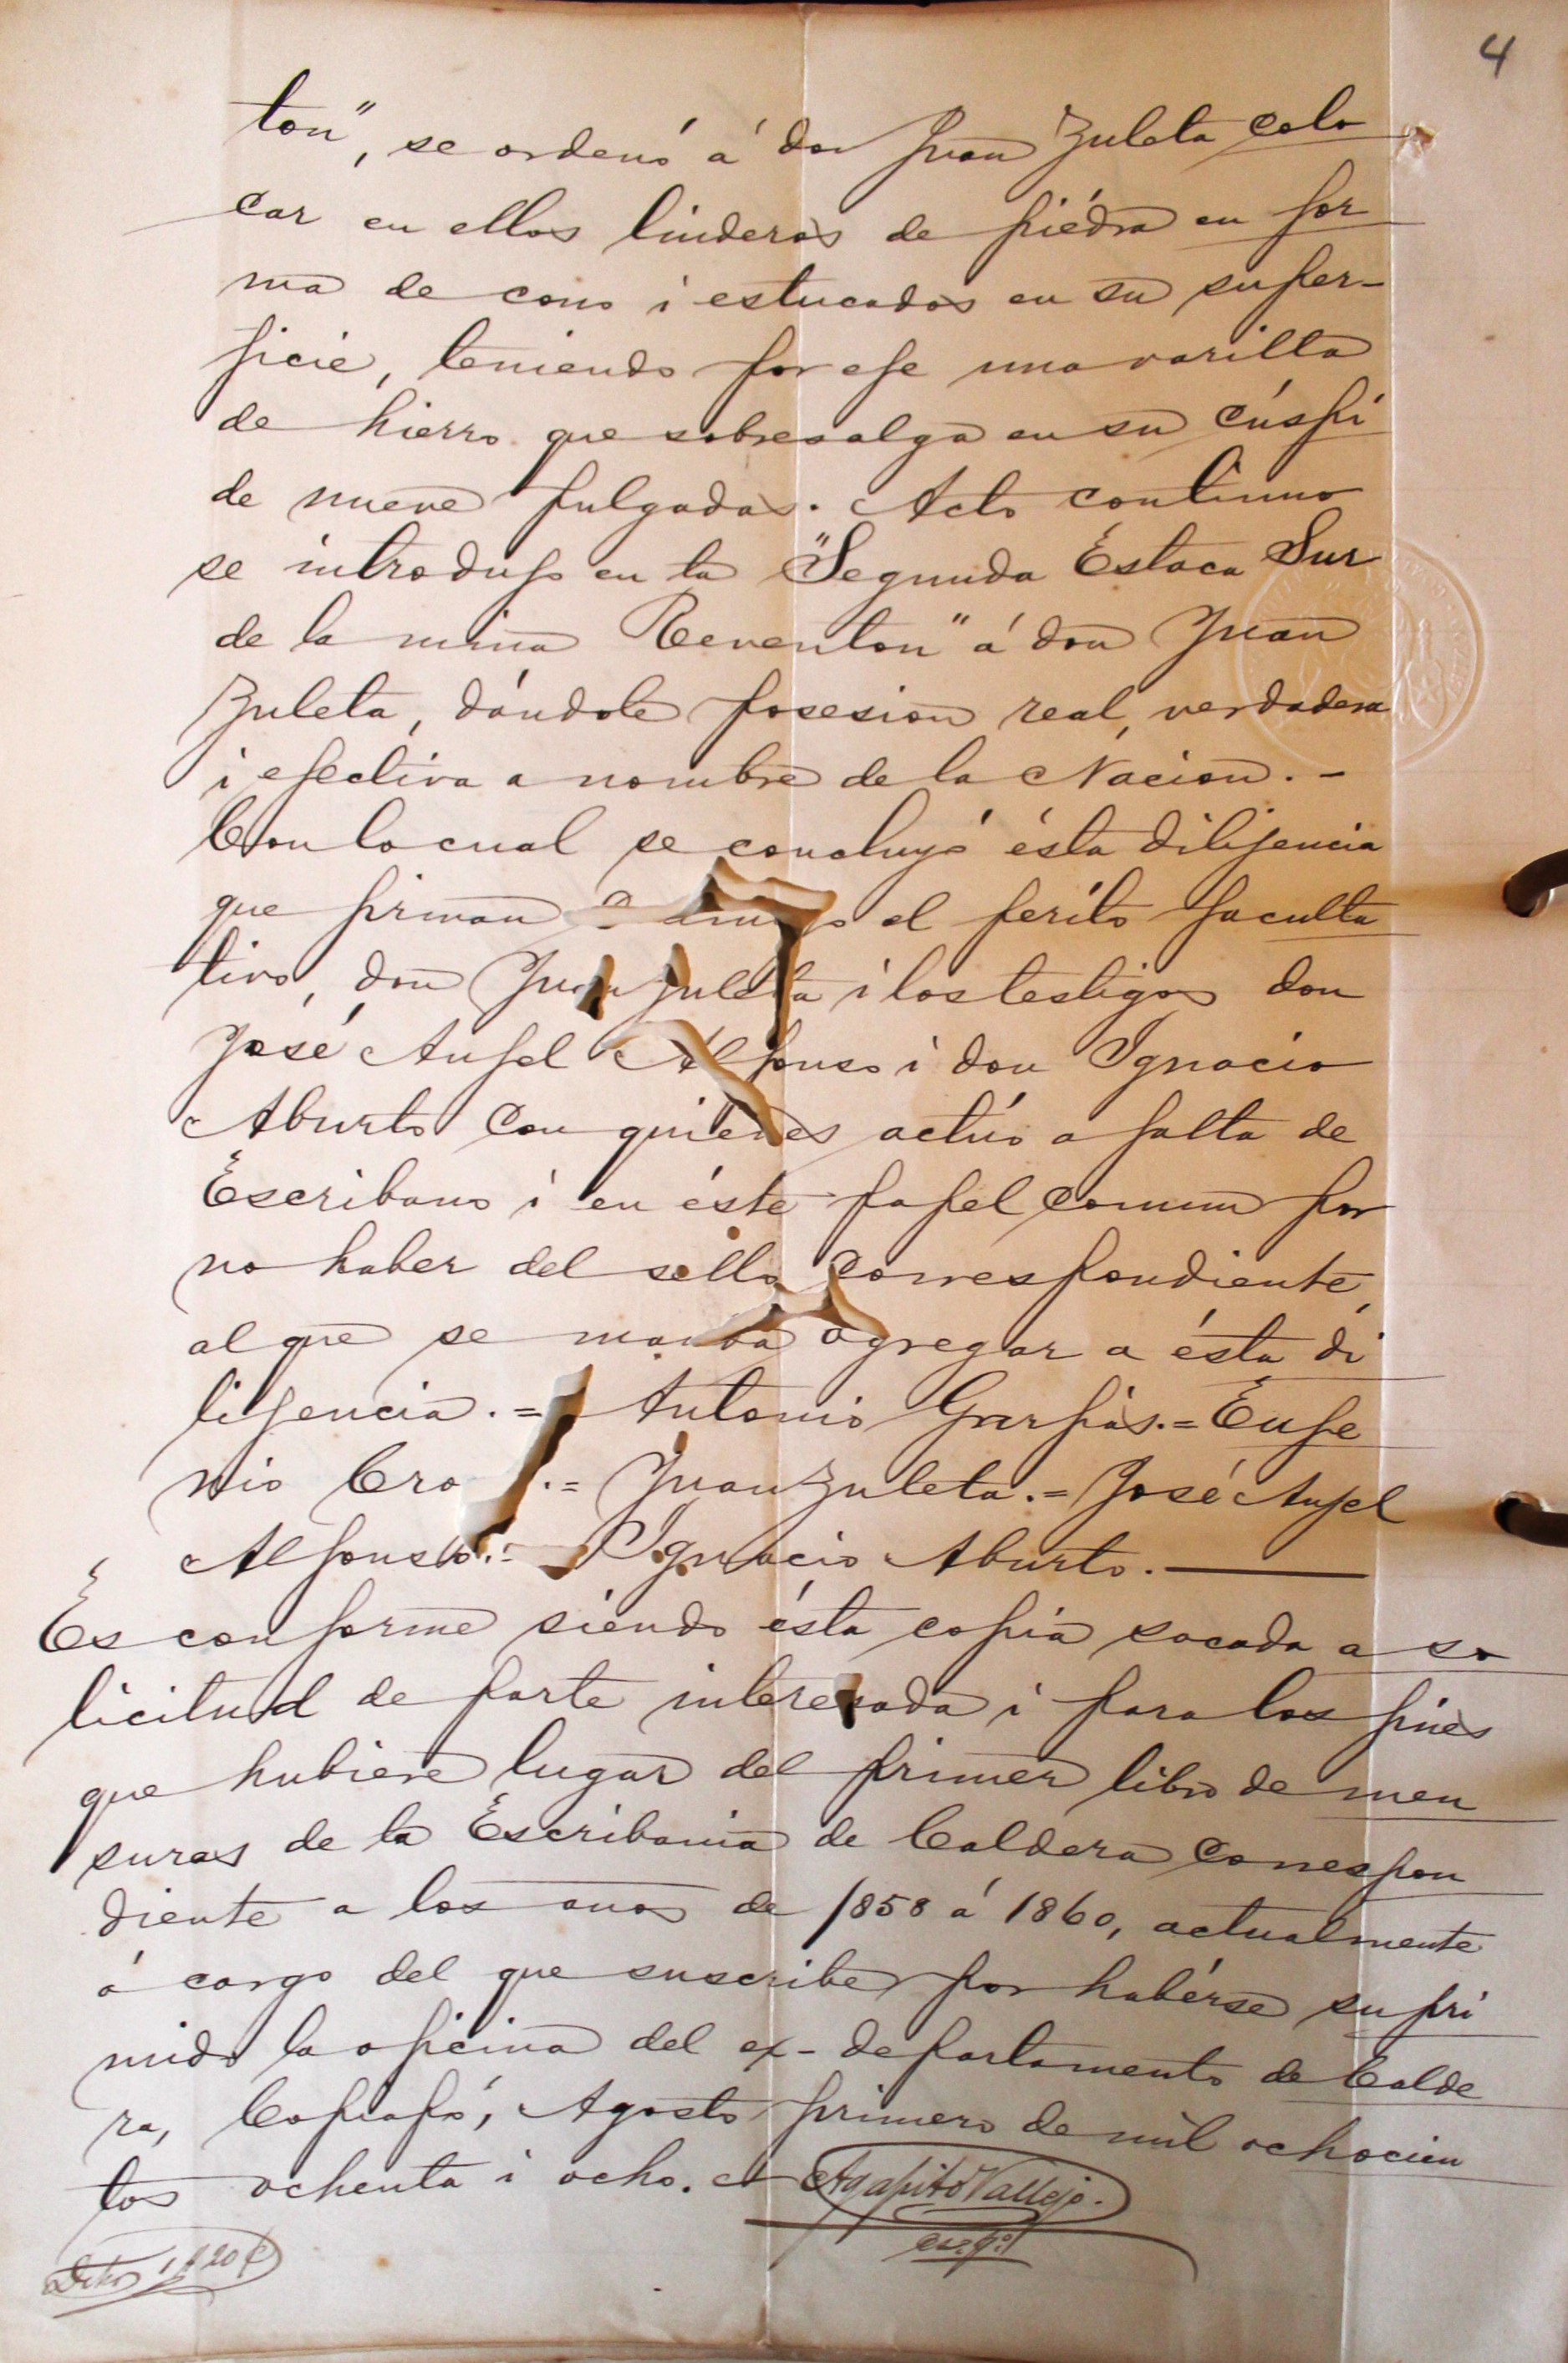 4
ton", se ordenó á don Juan Zuleta colo
car en ellos linderos de piédra en for
ma de cono i estucados en su super-
ficie, teniendo por eje una varilla
de hierro que sobresalga en su cúspi
de nueve pulgadas. Acto continuo
se introdujo en la "Segunda Estaca Sur
de la mina Reventon" á don Juan
Zuleta, dándole posesion real, verdadera
i efectiva a nombre de la Nacion.-
Con lo cual se concluyó ésta dilijencia
que firman el perito faculta
tivo, don Juan Zuleta i los testigos don
José Anjel Alfonso i don Ignacio
Aburto con quienes actúo a falta de
Escribano i en éste papel comun por
no haber del sello correspondiente,
al que se manda agregar a ésta di
lijencia.= Antonio Garfias.= Euje
nio Cro .= Juan Zuleta.= José Anjel
Alfonso.= Ignacio Aburto.
Es conforme siendo ésta copia sacada a so
licitud de parte interesada i para los fines
que hubiere lugar del primer libro de men
suras de la Escribania de Caldera correspon
diente a los anos de 1858 á 1860, actualmente
á cargo del que suscribe por habérse supri
mido la oficina del ex-departamento de Calde
ra, Copiapó, Agosto primero de mil ochocien
tos ochenta i ocho.
Agapito Vallejo.